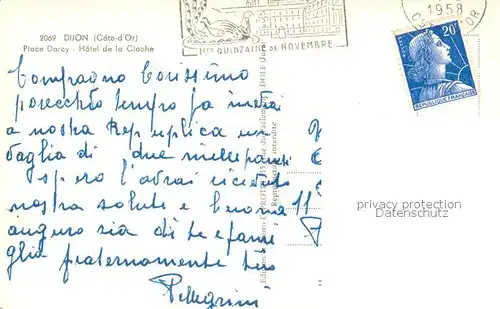 2069 DIJON (Côte-d'Or)
Place Darcy - Hôtel de la Cloche
1res QUINZAINE DE NOVEMBRE
1958
D'OR
20F
REPUBLIQUE FRANÇAISE
Compagno Carissimo
parecchio tempo fa
a nostra Rep
vaglia di due mille
spero l'avrai ricevuto
nostra salute e buona
auguro sia di te e fami
glia fraternamente tuo
Pellegrini
11
Reproduction interdite
privacy protection
Datenschutz